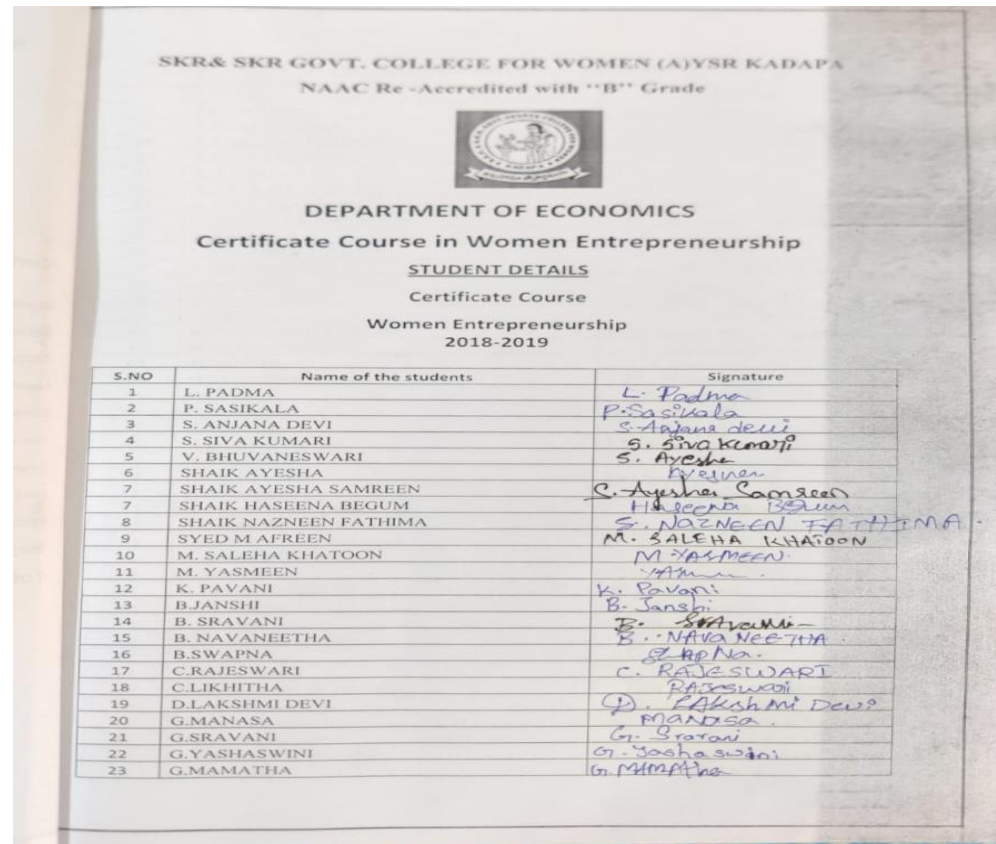 SKR& SKR GOVT. COLLEGE FOR WOMEN (A)YSR KADAPA
NAAC Re -Accredited with "B" Grade
DEPARTMENT OF ECONOMICS
Certificate Course in Women Entrepreneurship
STUDENT DETAILS
Certificate Course
Women Entrepreneurship
2018-2019
S.NO Name of the students Signature
1 L. PADMA L. Padma
2 P. SASIKALA P. Sasikala
3 S. ANJANA DEVI S. Anjana devi
4 S. SIVA KUMARI S. Siva Kumari
5 V. BHUVANESWARI S. Ayesha
6 SHAIK AYESHA
7 SHAIK AYESHA SAMREEN Ayesha Samreen
7 SHAIK HASEENA BEGUM Haseena BEGUM
8 SHAIK NAZNEEN FATHIMA S. NAZNEEN FATHIMA.
9 SYED M AFREEN M. SALEHA KHATOON
10 M. SALEHA KHATOON M YASMEEN.
11 M. YASMEEN
12 K. PAVANI K. Pavani
13 B.JANSHI B. Janshi
14 B. SRAVANI B. Sravani
15 B. NAVANEETHA B. NAVANEETHA.
16 B.SWAPNA
17 C.RAJESWARI C. RAJESWARI
18 C.LIKHITHA Rajeswari
19 D.LAKSHMI DEVI D. LAkshmi Devi
20 G.MANASA MANASA.
21 G.SRAVANI G. Sravani
22 G.YASHASWINI G. Yashaswini
23 G.MAMATHA G. MAMAtha